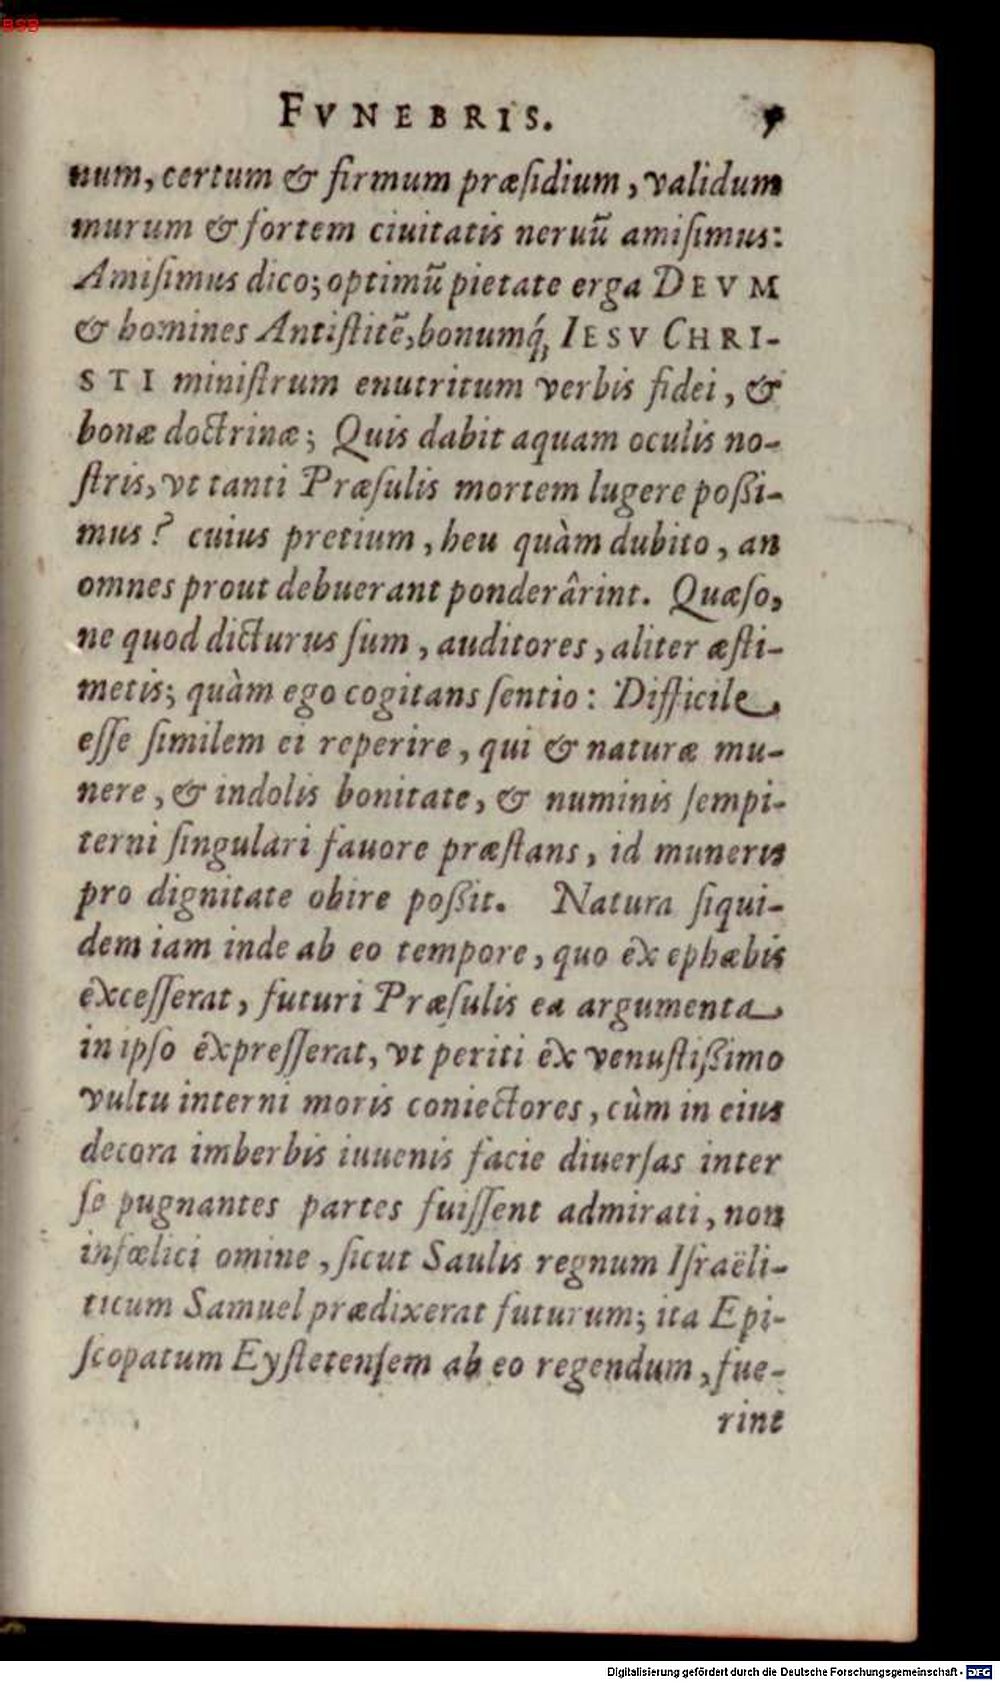 BSB
FVNEBRIS.
num, certum & firmum præſidium, validum
murum & fortem ciuitatis neruũ amiſimus:
Amiſimus dico; optimũ pietate erga DEVM
& homines Antiſtitẽ, bonumq́; IESV CHRI-
STI miniſtrum enutritum verbis fidei, &
bonæ doctrinæ; Quis dabit aquam oculis no-
ſtris, vt tanti Præſulis mortem lugere poßi-
mus? cuius pretium, heu quàm dubito, an
omnes prout debuerant ponderârint. Quæſo,
ne quod dicturus ſum, auditores, aliter æſti-
metis; quàm ego cogitans ſentio: Difficile
eſſe ſimilem ei reperire, qui & naturæ mu-
nere, & indolis bonitate, & numinis ſempi-
terni ſingulari fauore præſtans, id muneris
pro dignitate obire poßit. Natura ſiqui-
dem iam inde ab eo tempore, quo êx ephæbis
êxceſſerat, futuri Præſulis ea argumenta
in ipſo êxpreſſerat, vt periti êx venuſtißimo
vultu interni moris coniectores, cùm in eius
decora imberbis iuuenis facie diuerſas inter
ſe pugnantes partes fuiſſent admirati, non
infœlici omine, ſicut Saulis regnum Iſraëli-
ticum Samuel prædixerat futurum; ita Epi-
ſcopatum Eyſtetenſem ab eo regendum, fue-
rint
Digitalisierung gefördert durch die Deutsche Forschungsgemeinschaft - DFG